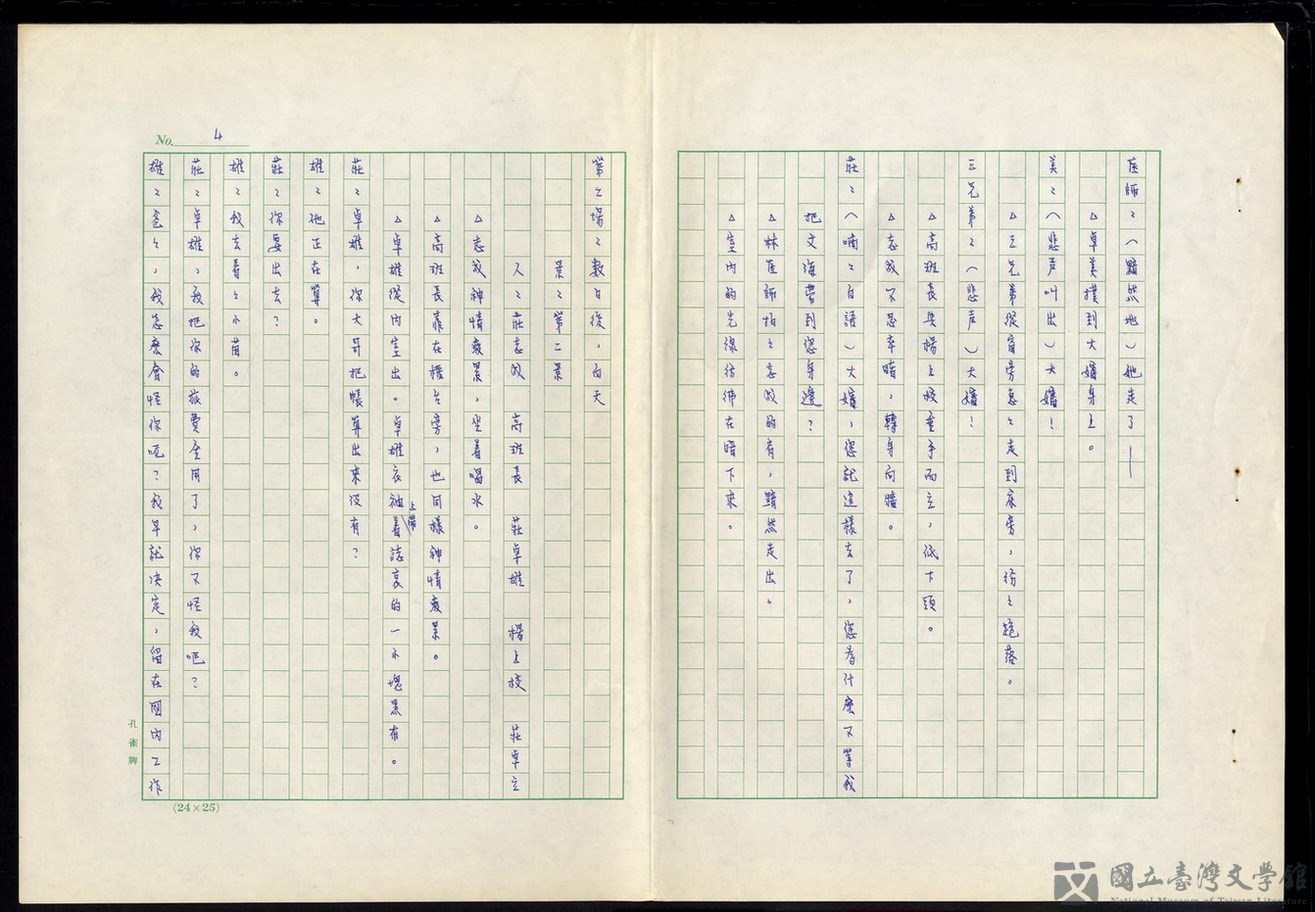 醫師：（黯然地）她走了——
△卓美撲到大嬸身上。
美：（悲声叫出）大嬸！
△三兄弟從窗旁急々走到床旁，紛々跪落。
三兄弟：（悲声）大嬸！
△高班長與楊上校垂手而立，低下頭。
△志成不忍卒睹，轉身向牆。
莊：（喃々自語）大嬸，您就這樣去了，您為什麼不等我
把文海帶到您身邊？
△林醫師拍々志成的肩，黯然走出。
△室內的光線彷彿在暗下來。
No. 4
第七場：數日後，白天
景：第二景
人：莊志成 高班長 莊卓雄 楊上校 莊卓立
△志成神情疲累，坐着喝水。
△高班長靠在櫃台旁，也同樣神情疲累。
△卓雄從內室出。卓雄衣袖上帶着誌哀的一小塊黑布。
莊：卓雄，你大哥把帳算出來沒有？
雄：他正在算。
莊：你要出去？
雄：我去看々小苗。
莊：卓雄，我把你的旅費全用了，你不怪我吧？
雄：爸々，我怎麼會怪你呢？我早就決定，留在國內工作
孔雀牌
(24×25)
國立臺灣文學館
National Museum of Taiwan Literature